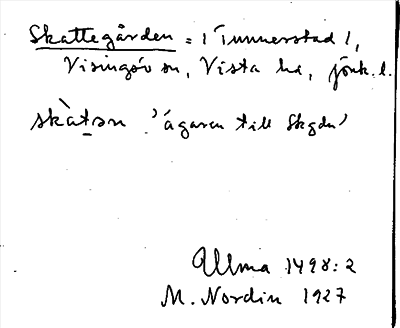 Skattegården = i Tunnerstad l,
Visingsö sn, Vista hd, jönk. l.
skàtən 'ägaren till Skgdn'
Ulma 1498:2
M. Nordin 1927